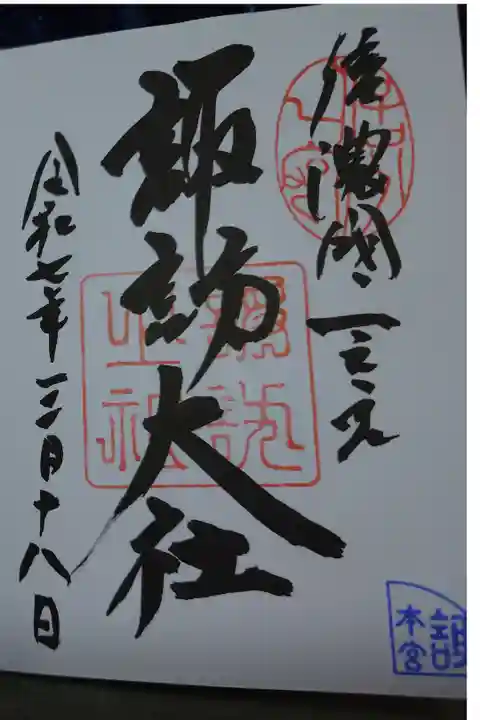 信濃國一之宮
諏訪大社
令和七年三月十八日
本宮